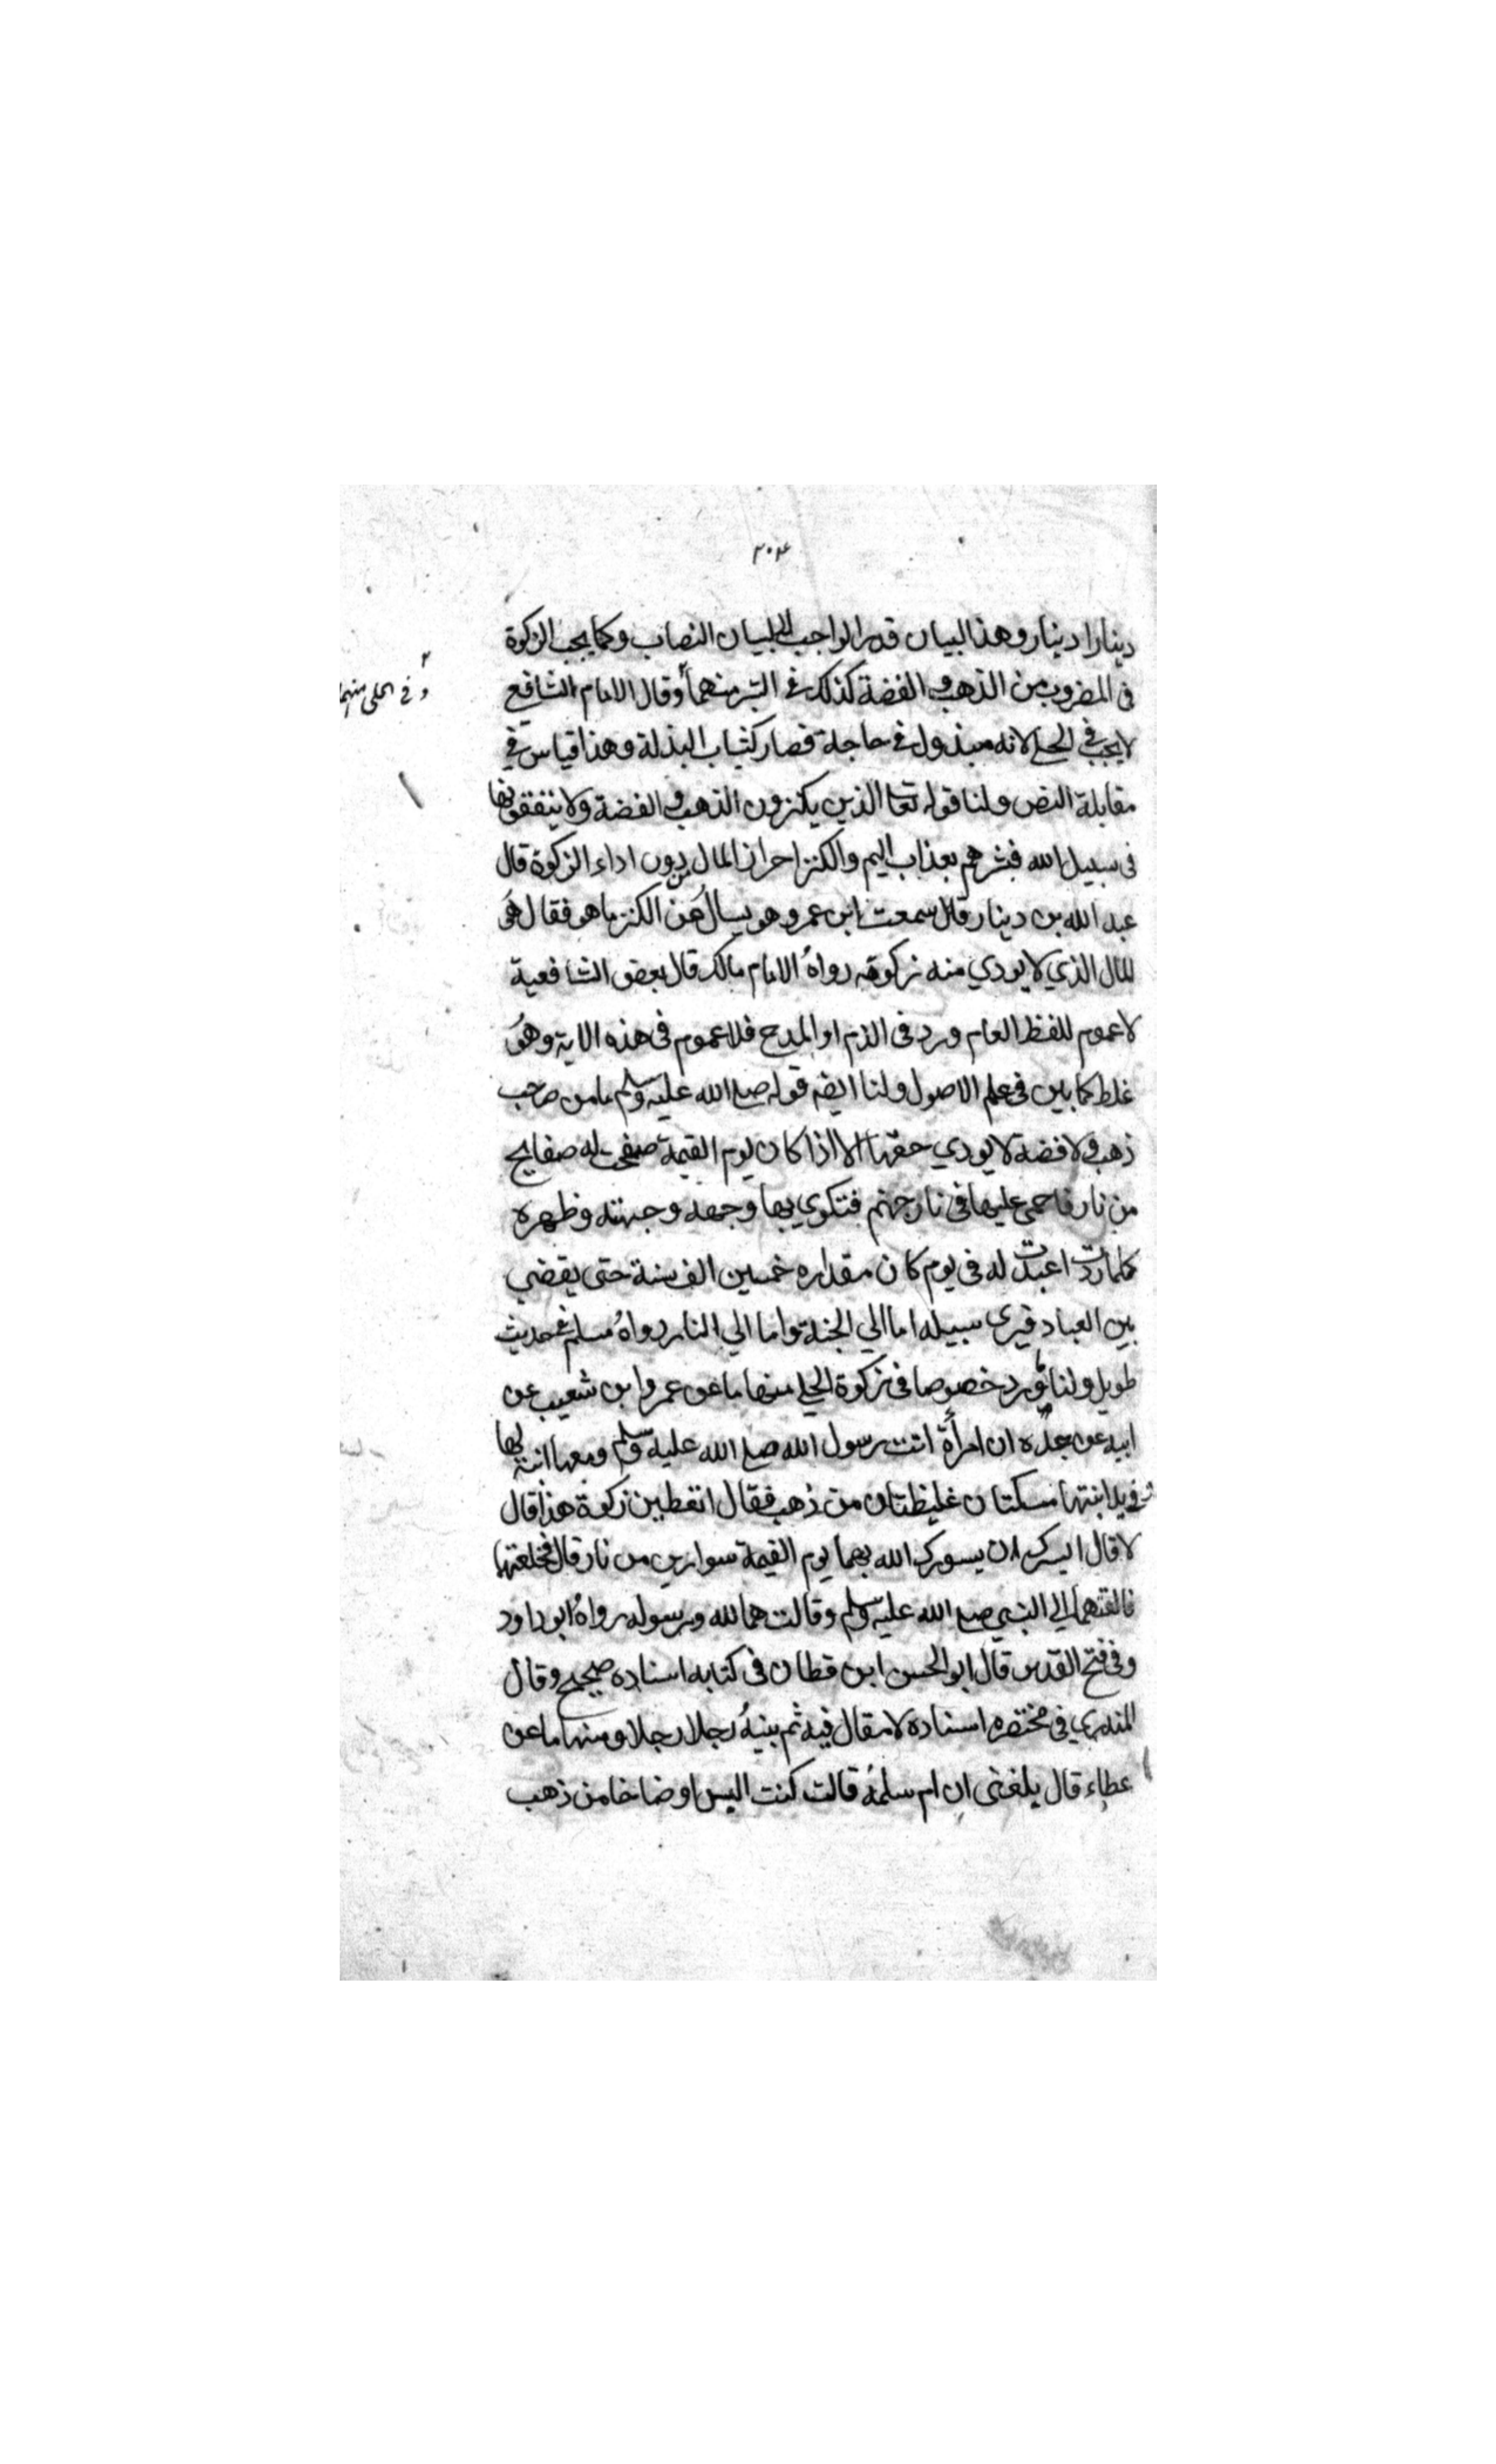 ٣٠٤
دينارا دينار وهذا لبيان قدر الواجب لا لبيان النصاب وكما يجب الزكوة
فى المضروب من الذهب والفضة كذلك فى التبر منهما وقال الامام الشافعي
وفي الحلي منهما
لا يجب في الحلي لانه مبذول في حاجة فصار كثياب البذلة وهذا قياس في
مقابلة النص ولنا قوله تعا الذين يكنزون الذهب والفضة ولا ينفقونها
فى سبيل الله فبشرهم بعذاب اليم والكنز احراز المال بدون اداء الزكوة قال
عبد الله بن دينار قال سمعت ابن عمر وهو يسال عن الكنز ما هو فقال هو
المال الذي لا يودي منه زكوته رواه الامام مالك قال بعض الشافعية
لا عموم للفظ العام ورد فى الذم او المدح فلا عموم فى هذه الاية وهو
غلط كما بين فى علم الاصول ولنا ايضه قوله صلع الله عليه وسلم ما من صاحب
ذهب ولا فضة لا يودي حقها الا اذا كان يوم القيمة صفحت له صفايح
من نار فاحمى عليها فى نار جهنم فتكوي بها وجهه وجبهته وظهره
كلما ردت اعيدت له فى يوم كان مقداره خمسين الف سنة حتى يقضي
بين العباد فيرى سبيله اما الي الجنة واما الي النار رواه مسلم في حديث
طويل ولنا ما ورد خصوصا فى زكوة الحلي منها ما عن عمرو ابن شعيب عن
ابيه عن جده ان امرأة اتت رسول الله صلع الله عليه وسلم ومعها ابنة لها
وفى يد ابنتها مسكتان غليظتان من ذهب فقال اتعطين زكوة هذا قال
لا قال ايسرك ان يسورك الله بهما يوم القيمة سوارين من نار قال فخلعتها
فالقتهما الي النبي صلع الله عليه وسلم وقالت هما لله ورسوله رواه ابو داود
وفى فتح القدير قال ابو الحسن ابن قطان فى كتابه اسناده صحيح وقال
المنذري في مختصره اسناده لا مقال فيه ثم بنيه رجلا رجلا ومنها ما عن
عطاء قال بلغنى ان ام سلمة قالت كنت البس اوضاخا من ذهب